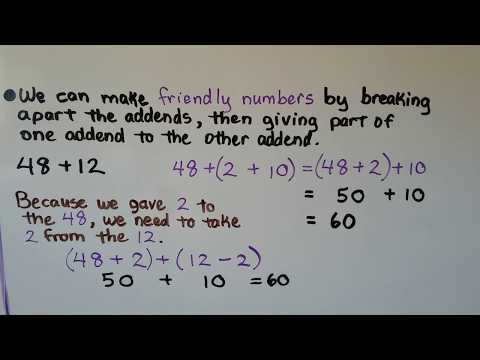 We can make friendly numbers by breaking
apart the addends, then giving part of
one addend to the other addend.
48 + 12
48 + (2 + 10) = (48 + 2) + 10
= 50 + 10
= 60
Because we gave 2 to
the 48, we need to take
2 from the 12.
(48 + 2) + (12 - 2)
50 + 10 = 60